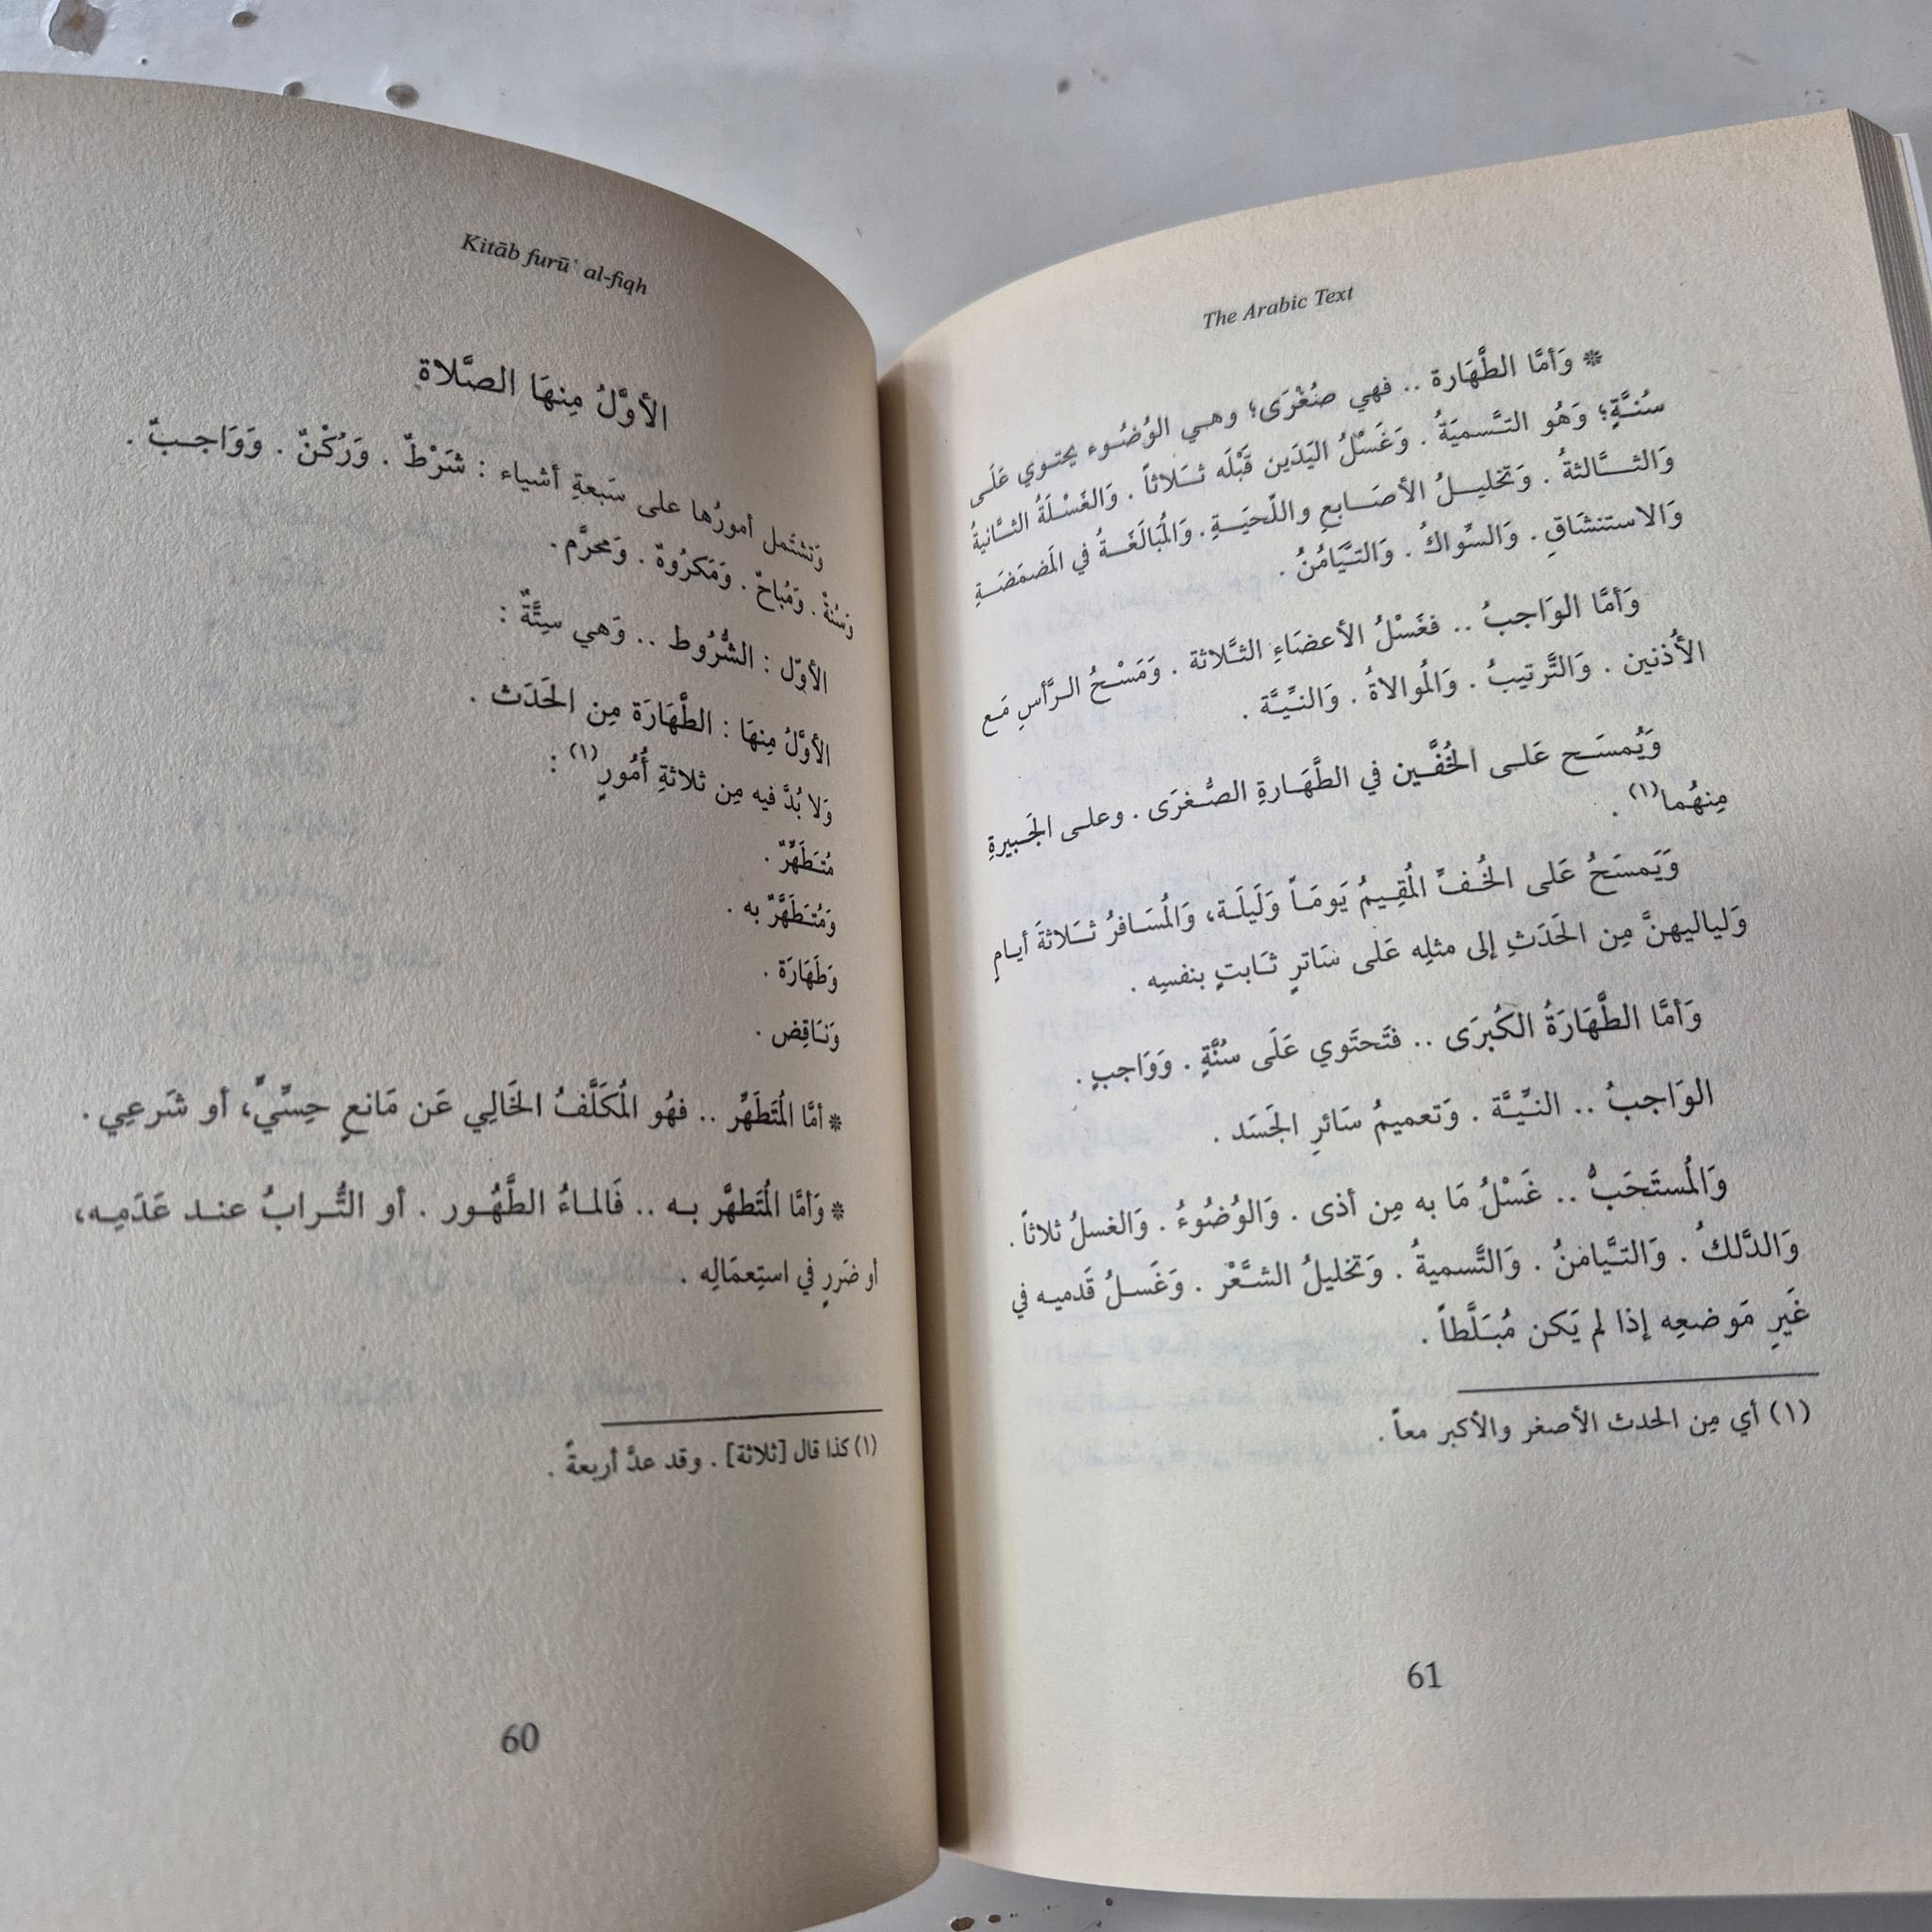 Kitāb furūʿ al-fiqh
الأوَّلُ مِنهَا الصَّلاة
وَتشتَمل أمورُها على سَبعةِ أشياء : شَرْطٌ . وَرُكْنٌ . وَوَاجـبٌ .
وَسُنةٌ . وَمُباحٌ . وَمَكرُوهٌ . وَمحرَّم .
الأوّل : الشُّرُوط .. وَهي سِتَّةٌ :
الأوَّلُ مِنهَا : الطَّهَارَة مِن الحَدَث .
وَلا بُدَّ فيه مِن ثلاثةِ أُمُورٍ(١) :
مُتـَطَهِّرٌ .
وَمُتـَطَهَّرٌ به .
وَطَهَارَة .
وَنـَاقِض .
* أمَّا المُتَطَهِّر .. فهُو المُكَلَّفُ الخَالِي عَن مَانعٍ حِسِّيٍّ، أو شَرعِي .
* وَأمَّا المُتَطهَّر بـه .. فَالمـاءُ الطَّهُـور . أو التُّـرابُ عنـد عَدَمِـه،
أو ضَررٍ في استِعمَالِه .
(١) كذا قال [ثلاثة] . وقد عدَّ أربعةً .
60
The Arabic Text
* وَأمَّا الطَّهَارة .. فهي صُغْرَى؛ وهـي الوُضُوء يحتـوي عَلَـى
سُنـَّةٍ؛ وَهُو التـَّسميَةُ . وَغَسْلُ اليَدَين قَبْلَه ثـَلاثاً . وَالغَسْلَةُ الثـَّانيةُ
وَالثـَّالثةُ . وَتخليـلُ الأصَـابعِ واللّحيَـةِ . وَالمُبَالَغَـةُ في المَضمَضَـةِ
وَالاستنشَاقِ . وَالسِّواكُ . وَالتـَّيَامُنُ .
وَأمَّا الوَاجبُ .. فغَسْلُ الأعضَاءِ الثـَّلاثة . وَمَسْـحُ الـرَّأسِ مَـع
الأُذنين . وَالتَّرتيبُ . وَالمُوالاةُ . وَالنـِّيـَّة .
وَيُمسَـح عَلـى الخُفَّـين في الطَّهَـارةِ الصُّـغرَى . وعلـى الجَـبيرةِ
مِنهُما(١) .
وَيَمسَحُ عَلى الخُـفِّ المُقِـيمُ يَومَـاً وَلَيلَـة، وَالمُسَـافرُ ثـَلاثةَ أيـامٍ
وَلياليهنَّ مِن الحَدَثِ إلى مثلِه عَلى سَاترٍ ثـَابتٍ بنفسِه .
وَأمَّا الطَّهَارَةُ الكُبرَى .. فتَحتَوي عَلَى سُنَّةٍ . وَوَاجبٍ .
الوَاجبُ .. النـِّيـَّة . وَتعميمُ سَائرِ الجَسَد .
وَالمُستَحَبُّ .. غَسْلُ مَا به مِن أذى . وَالوُضُوءُ . وَالغسلُ ثلاثاً .
وَالدَّلكُ . وَالتـَّيـَامنُ . وَالتَّسميةُ . وَتخليلُ الشـَّعْر . وَغَسـلُ قَدميـه في
غَيرِ مَوضعِه إذا لم يَكن مُبـَلَّطاً .
(١) أي مِن الحدث الأصغر والأكبر معاً .
61